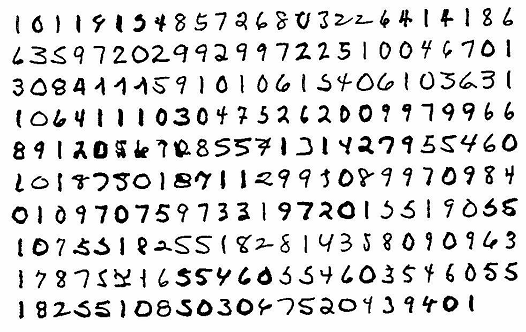 1011915485726803226414186
6359720299299722510046701
3084111591010615406103631
1064111030475262009979966
8912056708557131427955460
1018750187112993089970984
0109707597331972015519055
1075518255182814358090963
1787552165546055460354605 5
18255108503047520439401